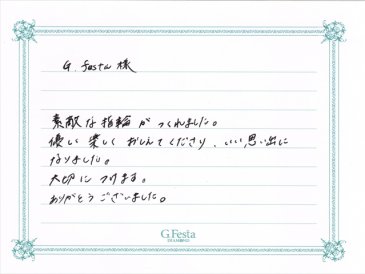 G. festa 様
素敵な指輪がつくれました。
優しく楽しくおしえてくださり、いい思い出に
なりました。
大切につけます。
ありがとうございました。
G.Festa